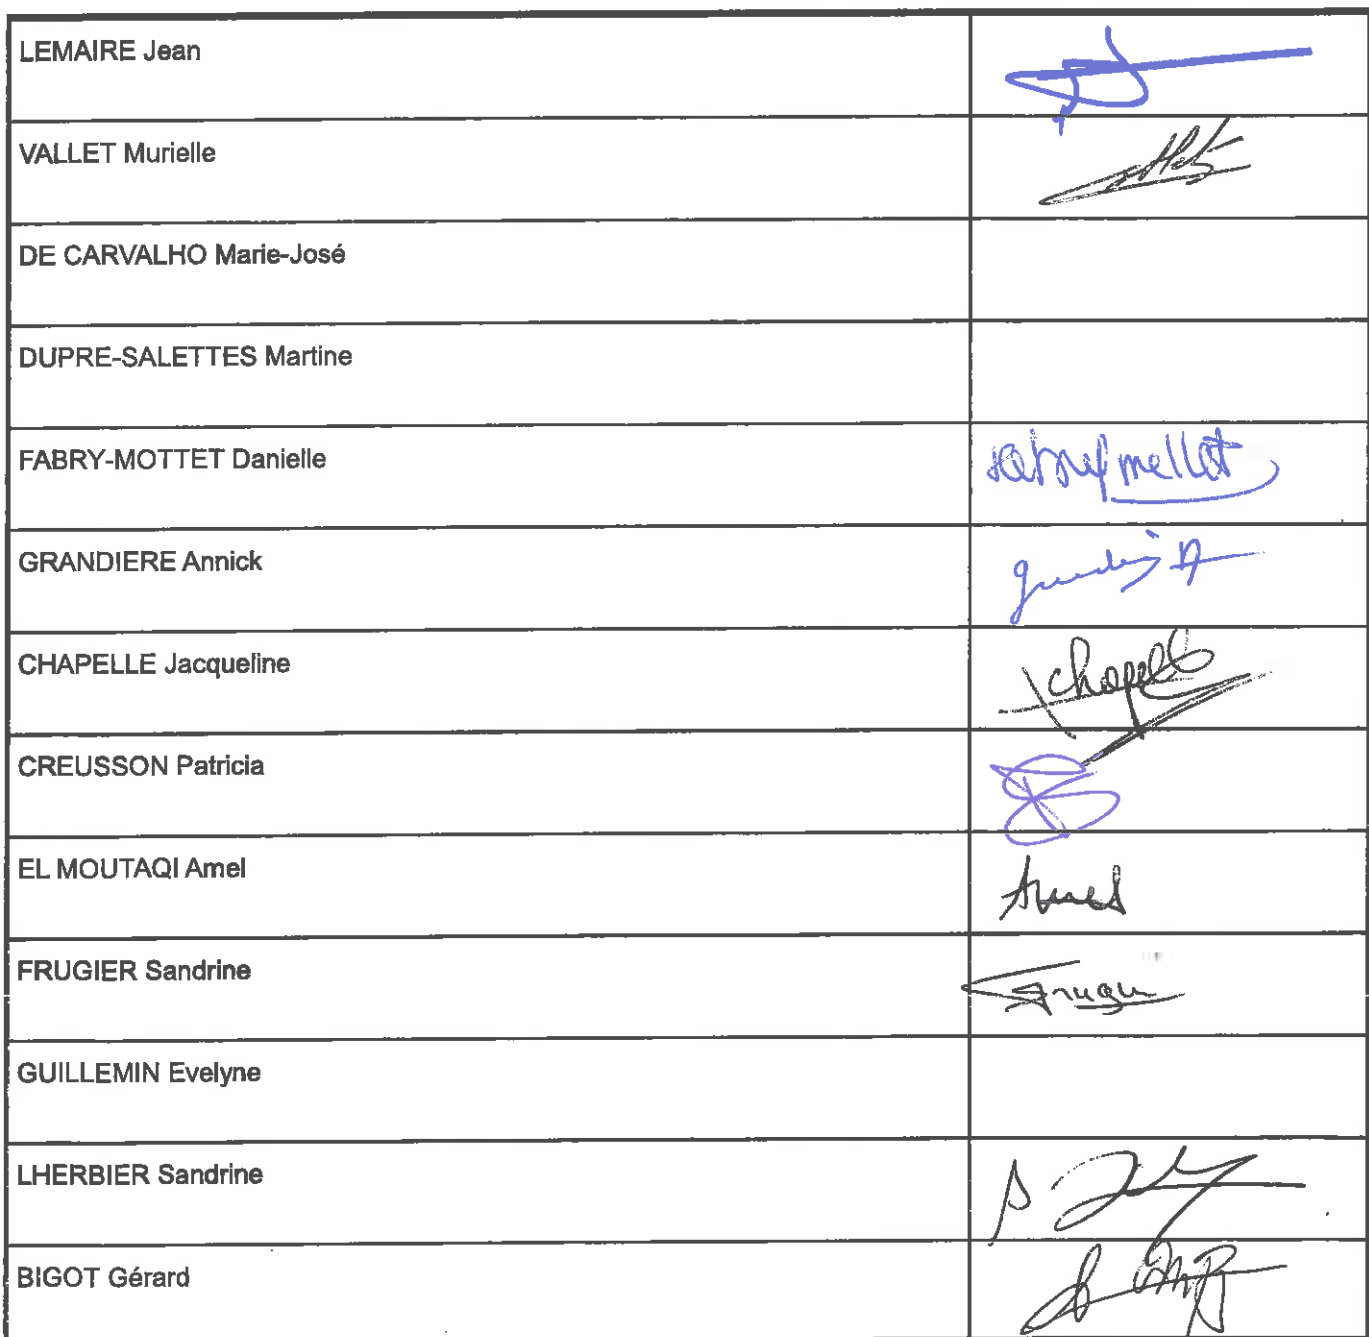 LEMAIRE Jean
VALLET Murielle
DE CARVALHO Marie-José
DUPRE-SALETTES Martine
FABRY-MOTTET Danielle
GRANDIERE Annick
CHAPELLE Jacqueline
CREUSSON Patricia
EL MOUTAQI Amel
Amel
FRUGIER Sandrine
GUILLEMIN Evelyne
LHERBIER Sandrine
BIGOT Gérard